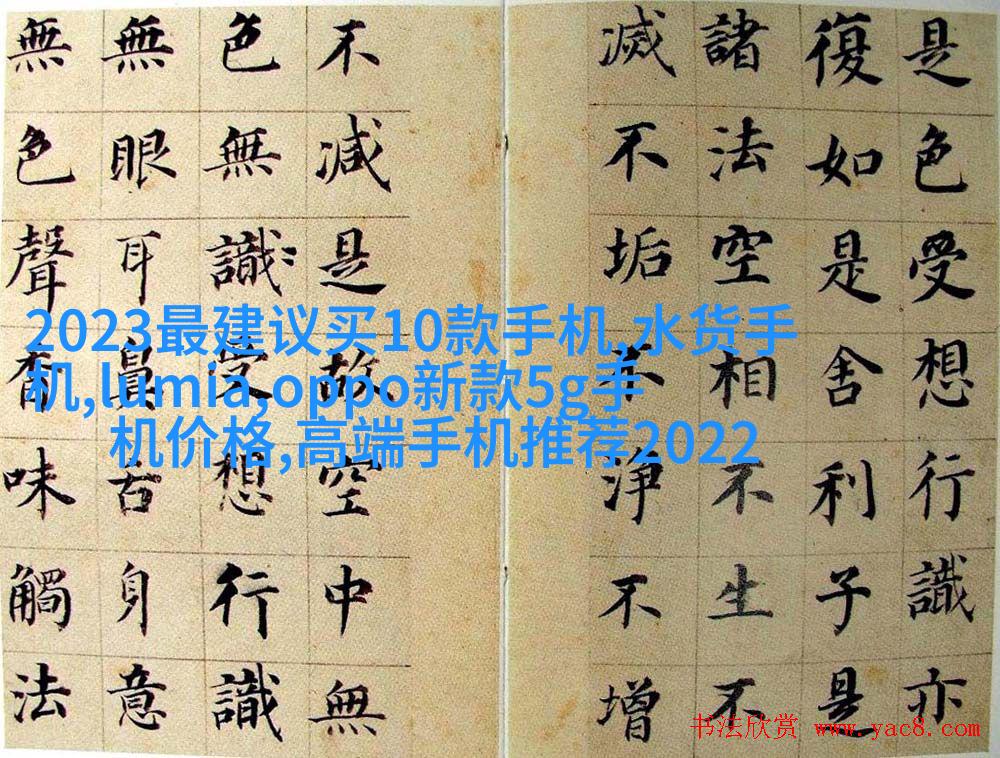 是色受想行識亦
復如是舍利子是
諸法空相不生不
滅不垢不淨不增
不減是故空中無
色無識受想行識
無眼耳鼻舌身意
無色聲香味觸法
2023最建议买10款手机,水货手
机,lumia,oppo新款5g手
机价格,高端手机推荐2022
书法欣赏 www.yac8.com